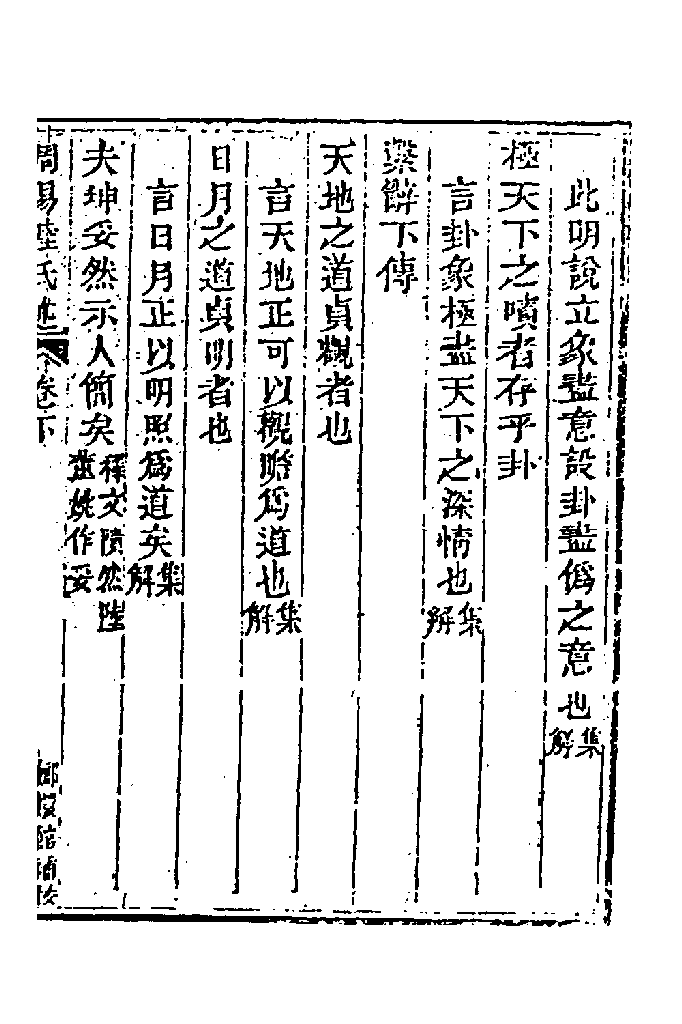 此明說立象盡意設卦盡僞之意也集解
極天下之賾者存乎卦
言卦象極盡天下之深情也集解
繫辭下傳
天地之道貞觀者也
言天地正可以觀瞻爲道也集解
日月之道貞明者也
言日月正以明照爲道矣集解
夫坤妥然示人簡矣釋文隤然陸董姚作妥
周易陸氏述 卷下